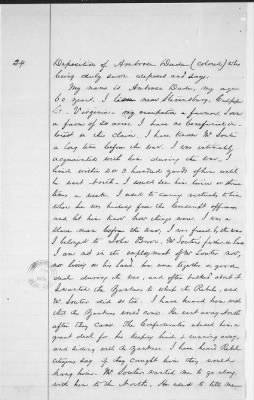 24
Deposition of Ambrose Dade (colored) who
being duly sworn deposes and says.
My name is Ambrose Dade, my age
60 years. I live near Stevensburg, Culpeper
Co. Virginia - my occupation a farmer. I own
a farm of 20 acres. I have no beneficial in-
terest in this claim. I have known Mr Soutter
a long time before the war. I was intimately
acquainted with him during the war. I
lived within 2 or 3 hundred yards of him until
he went North. I would see him twice or three
times a week. I used to carry victuals to him
when he was hiding from the Conscript officers
and let him know how things were. I was a
slave man before the war, I was freed by the war
I belonged to John
I am not in the employment of Mr Soutter now,
nor living on his land. We were together a good
deal during the war, and often talked about it.
I wanted the Yankees to whip the Rebels, and
Mr Soutter did so too. I have heard him wish
that the Yankees would come. He went away North
after they came. The Confederates abused him a
great deal for his keeping hid & running away,
and siding with the Yankees. I have heard Rebel
citizens say if they caught him they would
hang him. Mr Soutter wanted me to go along
with him to the North. He used to tell me